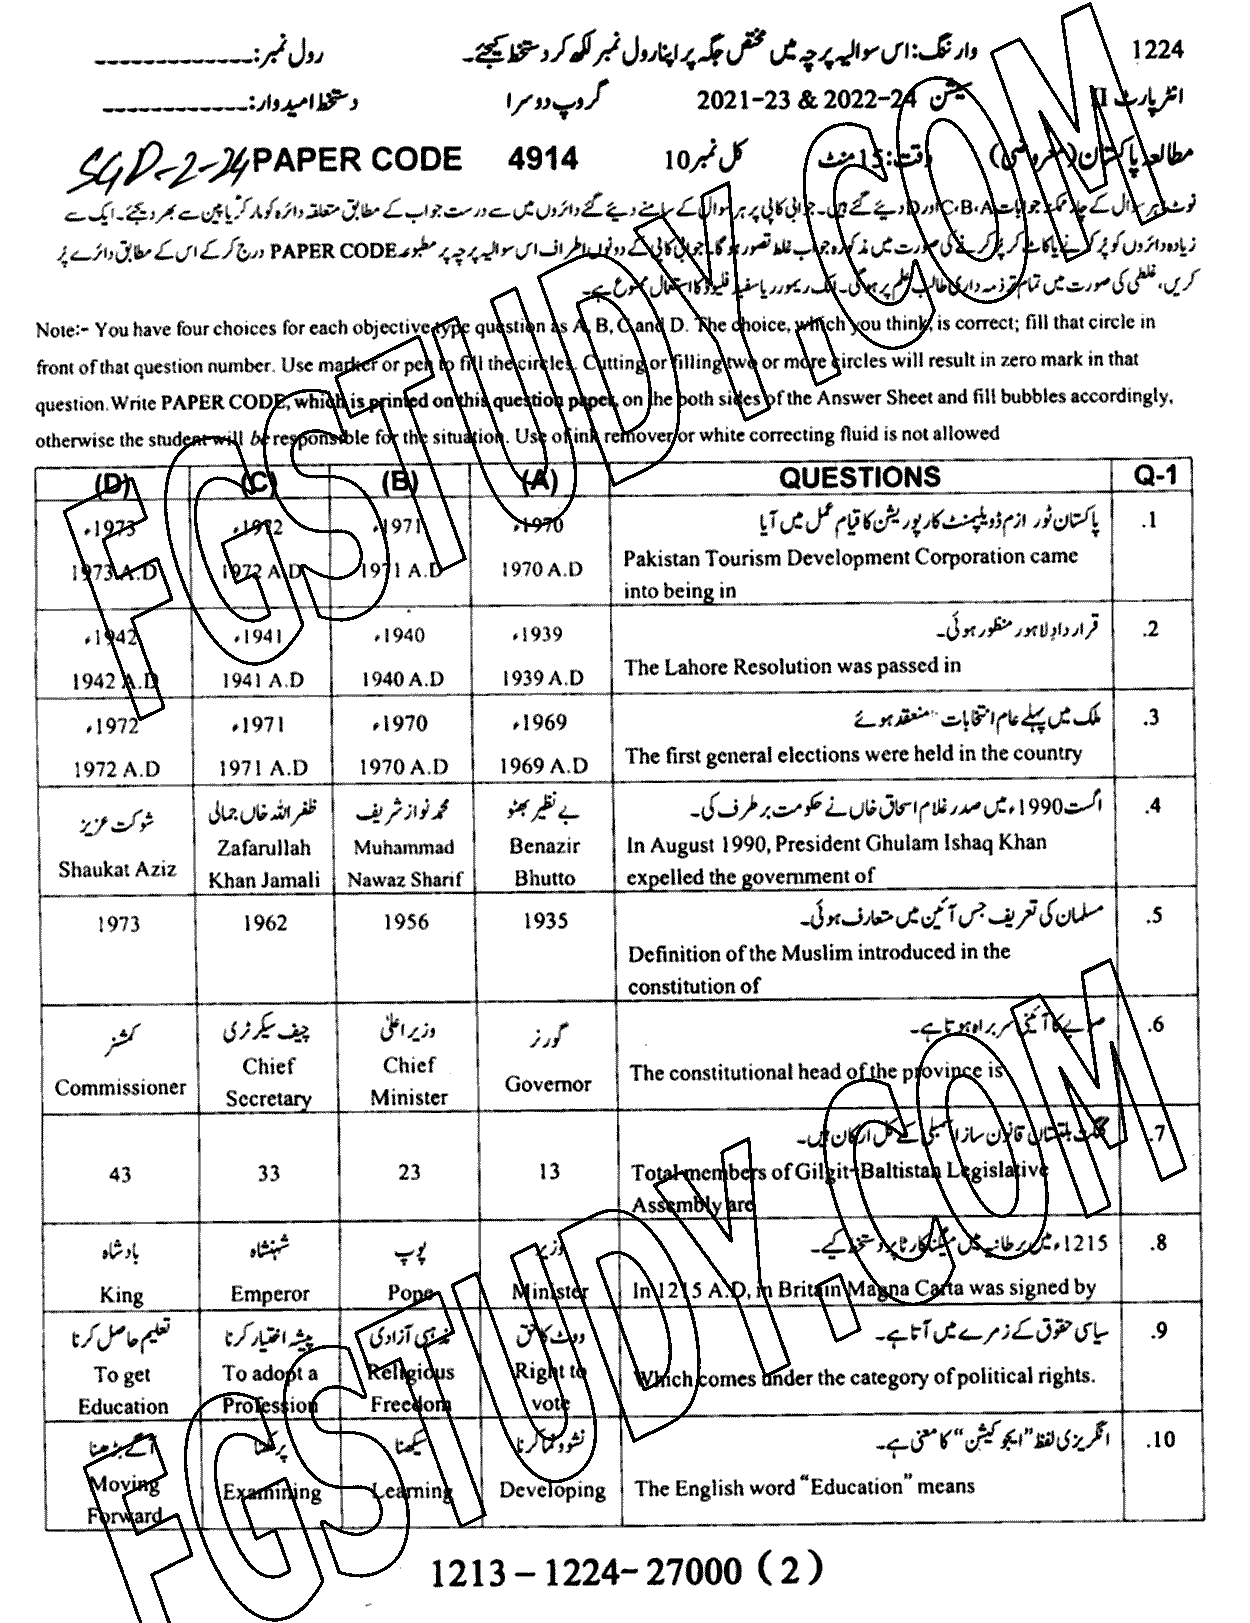 1224 وارننگ: اس سوالیہ پرچہ میں مختص جگہ پر اپنا رول نمبر لکھ کر دستخط کیجئے۔ رول نمبر: -------------
انٹر پارٹ II سیشن 2021-23 & 2022-24 گروپ دوسرا دستخط امیدوار: -------------
مطالعہ پاکستان (معروضی) وقت: 15 منٹ کل نمبر 10 PAPER CODE 4914 SGD-2-24
نوٹ: ہر سوال کے چار ممکنہ جوابات A، B، C اور D دیئے گئے ہیں۔ جوابی کاپی پر ہر سوال کے سامنے دیئے گئے دائروں میں سے درست جواب کے مطابق متعلقہ دائرہ کو مارکر یا پین سے بھر دیجئے۔ ایک سے
زیادہ دائروں کو پُر کرنے یا کاٹ کر پُر کرنے کی صورت میں مذکورہ جواب غلط تصور ہو گا۔ جوابی کاپی کے دونوں اطراف اس سوالیہ پرچہ پر مطبوعہ PAPER CODE درج کر کے اس کے مطابق دائرے پُر
کریں، غلطی کی صورت میں تمام تر ذمہ داری طالب علم پر ہوگی۔ انک ریمور ریا سفید فلیوڈ کا استعمال ممنوع ہے۔
Note:- You have four choices for each objective type question as A, B, C and D. The choice, which you think, is correct; fill that circle in
front of that question number. Use marker or pen to fill the circles. Cutting or filling two or more circles will result in zero mark in that
question. Write PAPER CODE, which is printed on this question paper, on the both sides of the Answer Sheet and fill bubbles accordingly,
otherwise the student will be responsible for the situation. Use of ink remover or white correcting fluid is not allowed
(D) (C) (B) (A) QUESTIONS Q-1
1973ء 1972ء 1971ء 1970ء پاکستان ٹور ازم ڈویلپمنٹ کارپوریشن کا قیام عمل میں آیا .1
1973 A.D 1972 A.D 1971 A.D 1970 A.D Pakistan Tourism Development Corporation came
into being in
1942ء 1941ء 1940ء 1939ء قرار دادِ لاہور منظور ہوئی۔ .2
1942 A.D 1941 A.D 1940 A.D 1939 A.D The Lahore Resolution was passed in
1972ء 1971ء 1970ء 1969ء ملک میں پہلے عام انتخابات منعقد ہوئے .3
1972 A.D 1971 A.D 1970 A.D 1969 A.D The first general elections were held in the country
شوکت عزیز ظفر اللہ خاں جمالی محمد نواز شریف بے نظیر بھٹو اگست 1990ء میں صدر غلام اسحاق خاں نے حکومت برطرف کی۔ .4
Shaukat Aziz Zafarullah Muhammad Benazir In August 1990, President Ghulam Ishaq Khan
Khan Jamali Nawaz Sharif Bhutto expelled the government of
1973 1962 1956 1935 مسلمان کی تعریف جس آئین میں متعارف ہوئی۔ .5
Definition of the Muslim introduced in the
constitution of
کمشنر چیف سیکرٹری وزیر اعلیٰ گورنر صوبے کا آئینی سربراہ ہوتا ہے۔ .6
Commissioner Chief Chief Governor The constitutional head of the province is
Secretary Minister
گلگت بلتستان قانون ساز اسمبلی کے کل ارکان ہیں۔ .7
43 33 23 13 Total members of Gilgit-Baltistan Legislative
Assembly are
بادشاہ شہنشاہ پوپ وزیر 1215ء میں برطانیہ میں میگنا کارٹا پر دستخط کیے۔ .8
King Emperor Pope Minister In 1215 A.D, in Britain Magna Carta was signed by
تعلیم حاصل کرنا پیشہ اختیار کرنا مذہبی آزادی ووٹ کا حق سیاسی حقوق کے زمرے میں آتا ہے۔ .9
To get To adopt a Religious Right to Which comes under the category of political rights.
Education Profession Freedom vote
آگے بڑھنا پرکھنا سیکھنا نشوونما کرنا انگریزی لفظ "ایجوکیشن" کا معنی ہے۔ .10
Moving Examining Learning Developing The English word "Education" means
Forward
1213 – 1224 – 27000 (2)
FGSTUDY.COM
FGSTUDY.COM